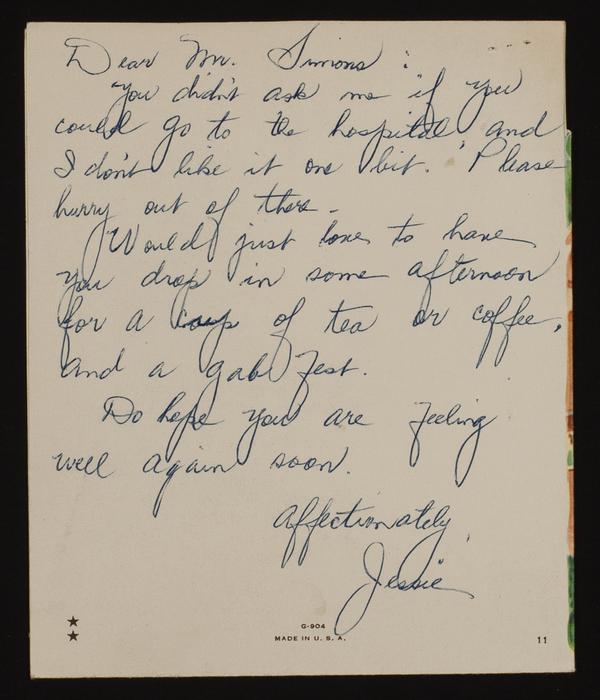 Dear Mr. Simons :
You didn't ask me if you
could go to the hospital and
I don't like it one bit. Please
hurry out of there -
Would just love to have
you drop in some afternoon
for a cup of tea or coffee,
and a gab fest.
Do hope you are feeling
well again soon.
Affectionately,
Jessie
G-904
MADE IN U. S. A.
11